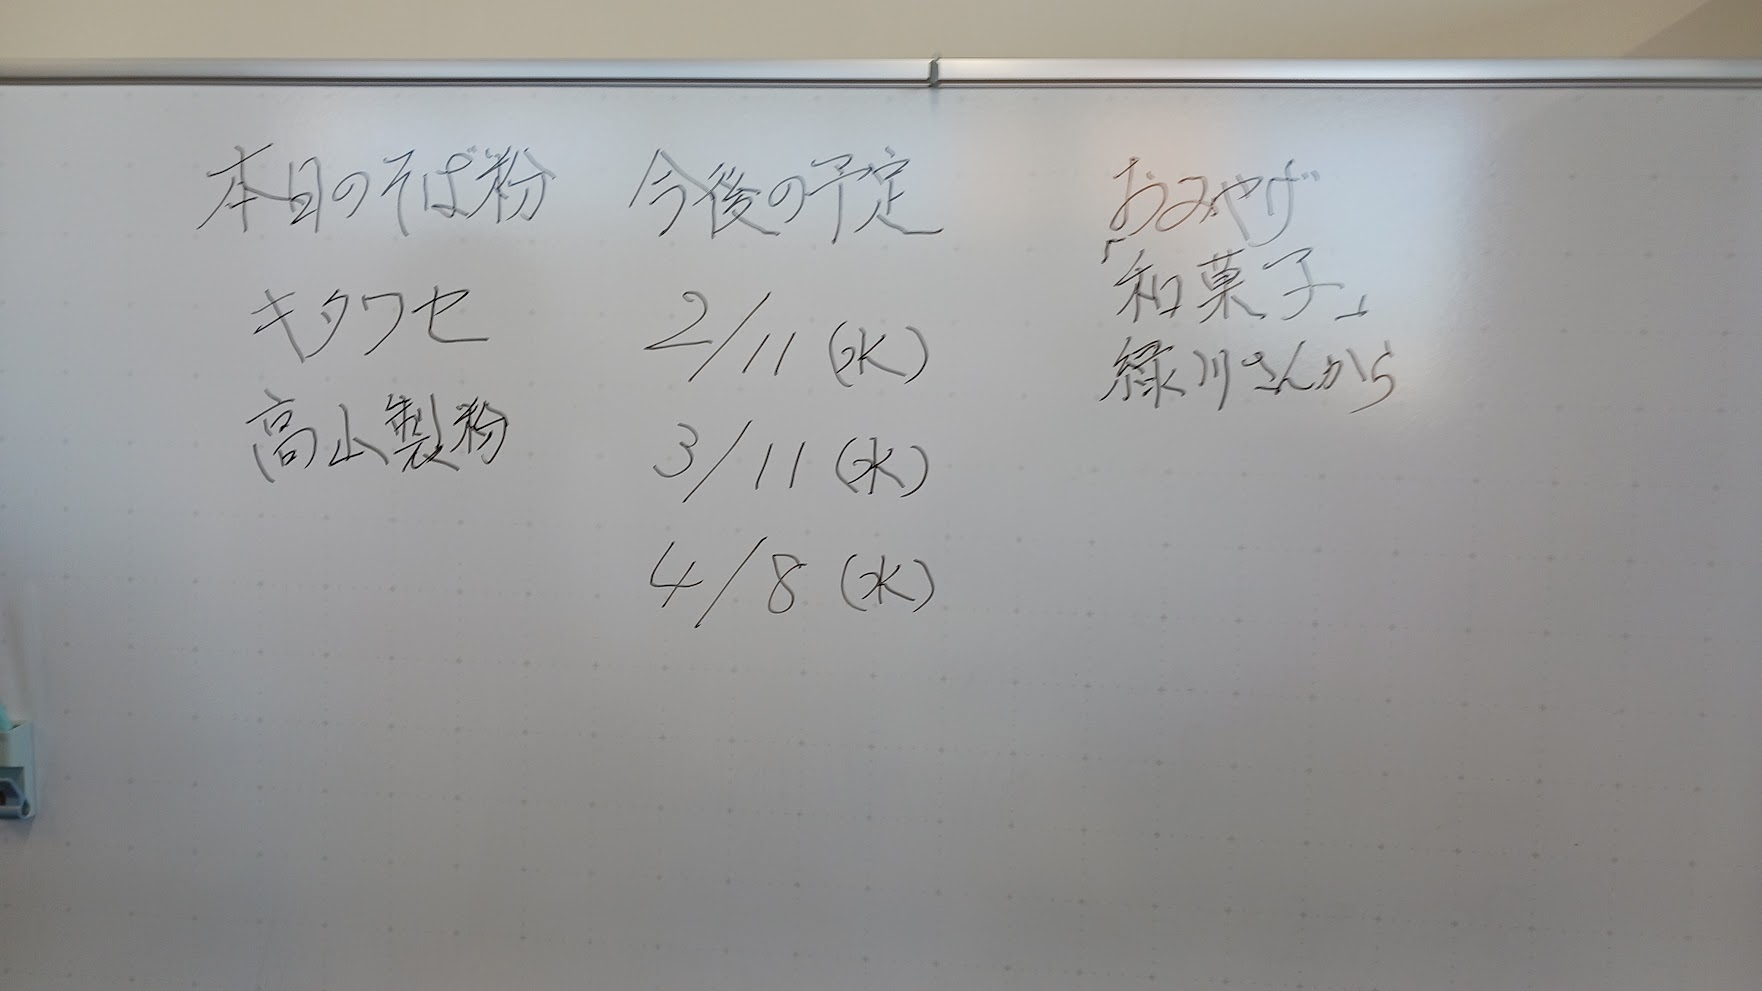 本日のそば粉
キタワセ
高山製粉
今後の予定
2/11(水)
3/11(水)
4/8(水)
おみやげ
「和菓子」
緑川さんから